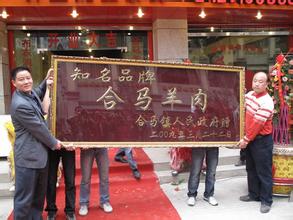 知名品牌
合马羊肉
合马镇人民政府赠
二00九年三月二十二日